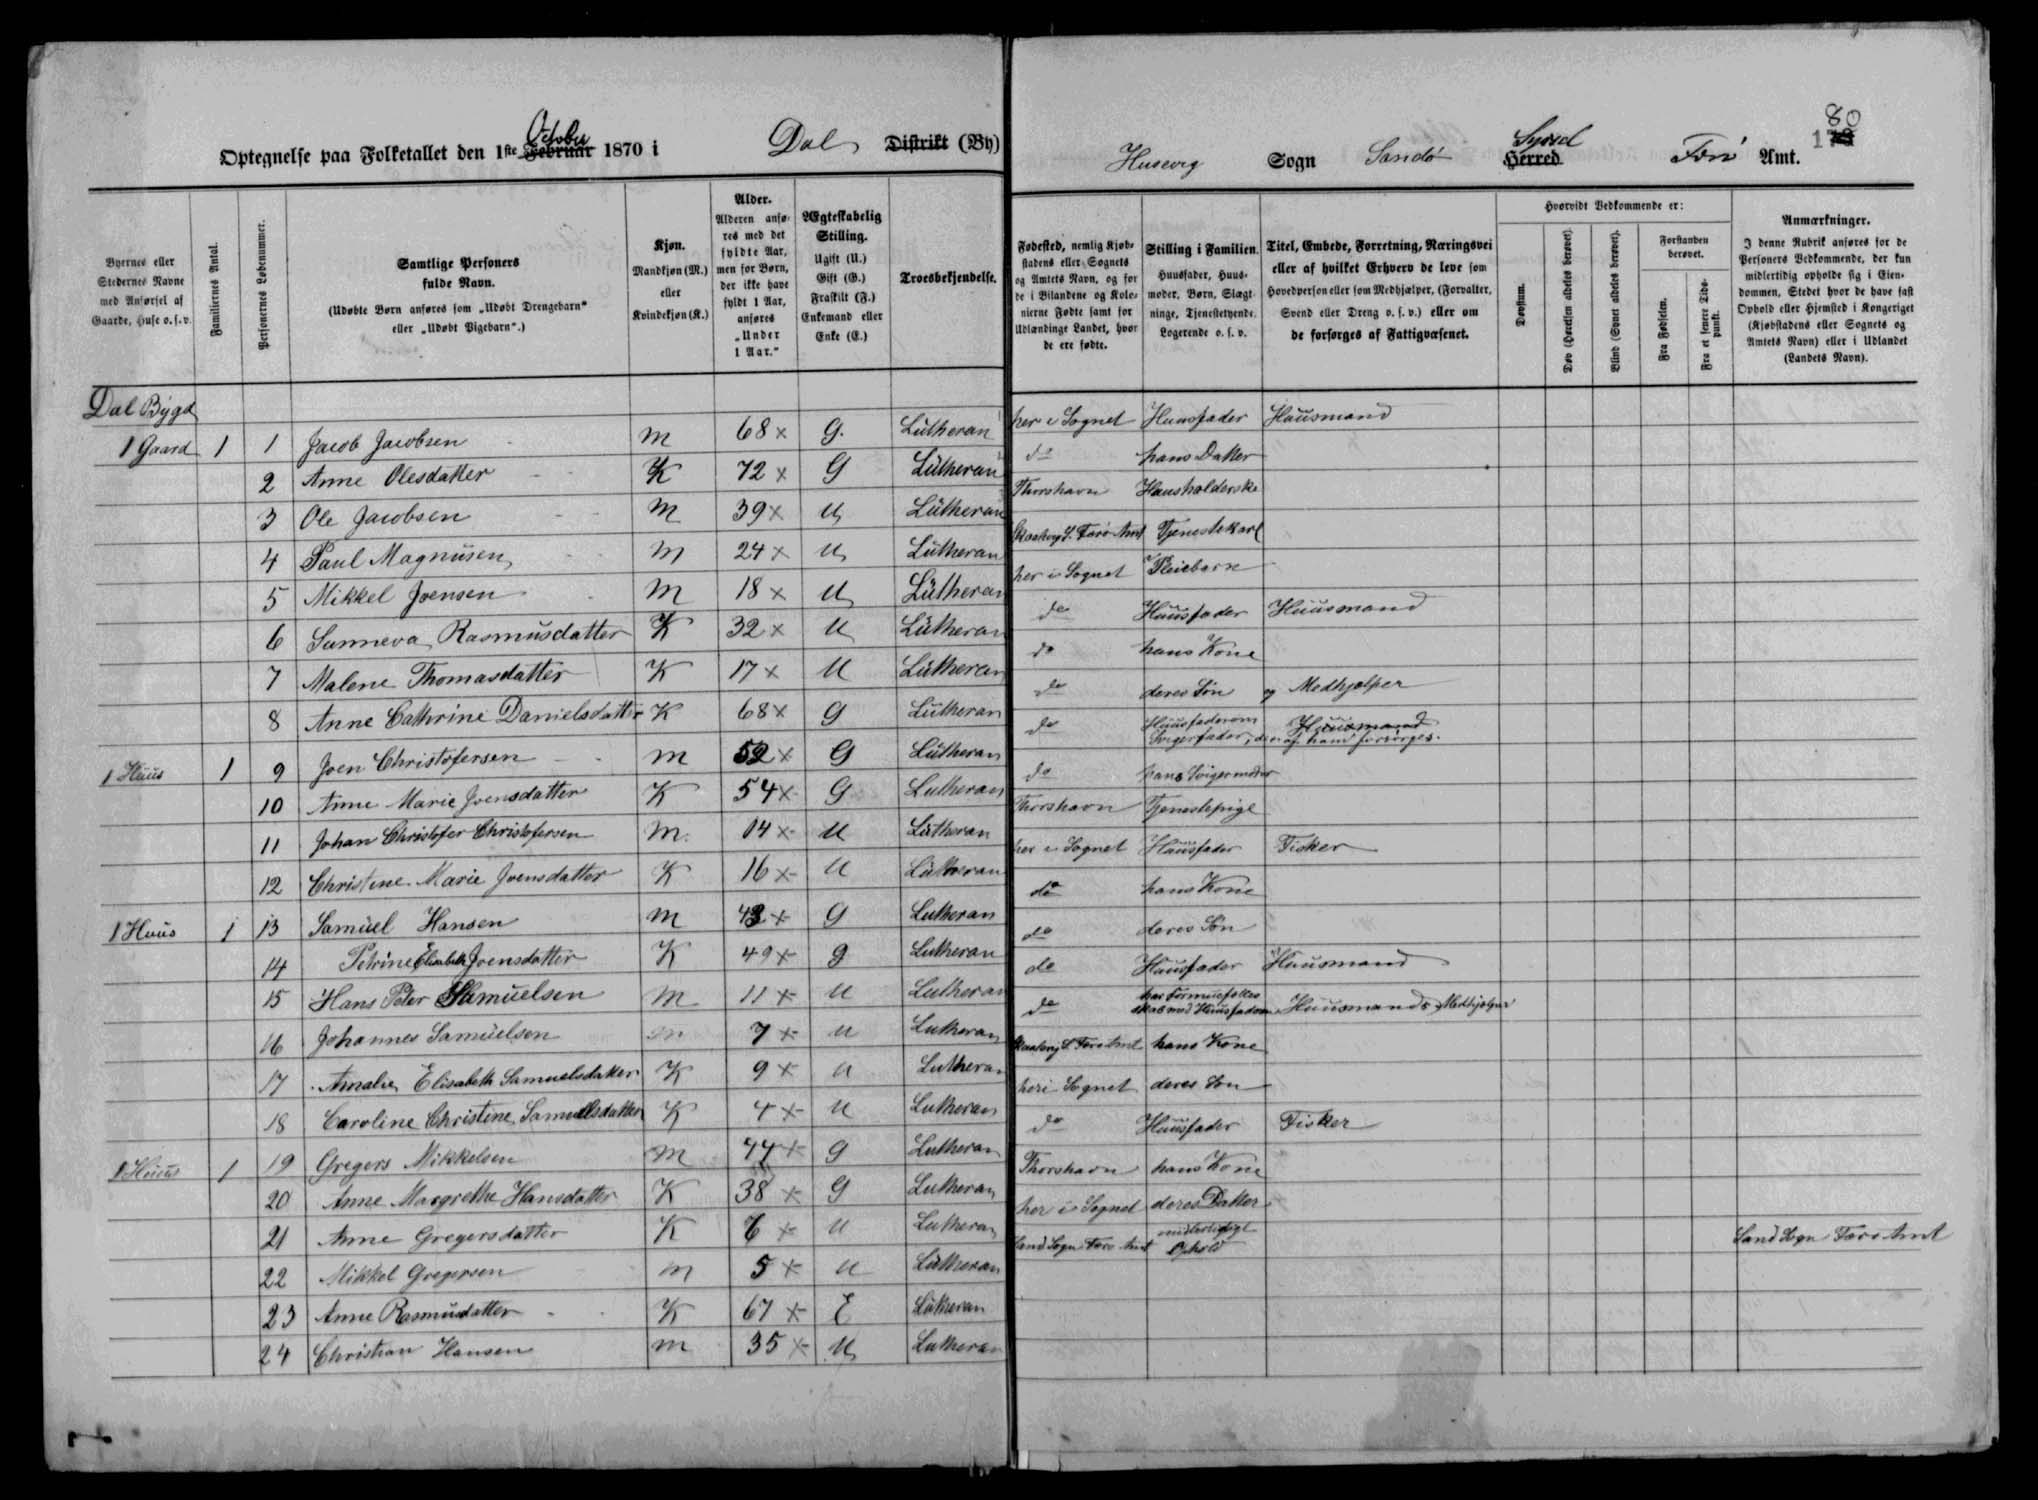 Optegnelse paa Folketallet den 1ste October Februar 1870 i Dal Distrikt (By)
Byernes eller Stedernes Navne med Anførsel af Gaarde, Huse o. s. v.
Familiernes Antal.
Personernes Løbenummer.
Samtlige Personers fulde Navn.
(Udøbte Børn anføres som „Udøbt Drengebarn“ eller „Udøbt Pigebarn“.)
Kjøn. Mandkjøn (M.) eller Kvindekjøn (K.)
Alder. Alderen anføres med det fyldte Aar, men for Børn, der ikke have fyldt 1 Aar, anføres „Under 1 Aar.“
Ægteskabelig Stilling. Ugift (U.) Gift (G.) Fraskilt (F.) Enkemand eller Enke (E.)
Troesbekjendelse.
Dal Bygd
1 Gaard 1 1 Jacob Jacobsen M 68 x G. Lutheran
2 Anne Olesdatter K 72 x G Lutheran
3 Ole Jacobsen M 39 x U Lutheran
4 Paul Magnusen M 24 x U Lutheran
5 Mikkel Joensen M 18 x U Lutheran
6 Sunneva Rasmusdatter K 32 x U Lutheran
7 Malene Thomasdatter K 17 x U Lutheran
8 Anne Cathrine Danielsdatter K 68 x G Lutheran
1 Huus 1 9 Joen Christofersen M 52 x G Lutheran
10 Anne Marie Joensdatter K 54 x G Lutheran
11 Johan Christofer Christofersen M. 14 x U Lutheran
12 Christine Marie Joensdatter K 16 x U Lutheran
1 Huus 1 13 Samuel Hansen M 43 x G Lutheran
14 Petrine Elisabeth Joensdatter K 49 x G Lutheran
15 Hans Peter Samuelsen M 11 x U Lutheran
16 Johannes Samuelsen M 7 x U Lutheran
17 Amalie Elisabeth Samuelsdatter K 9 x U Lutheran
18 Caroline Christine Samuelsdatter K 4 x U Lutheran
1 Huus 1 19 Gregers Mikkelsen M 44 x G Lutheran
20 Anne Margrethe Hansdatter K 38 x G Lutheran
21 Anne Gregersdatter K 6 x U Lutheran
22 Mikkel Gregersen M 5 x U Lutheran
23 Anne Rasmusdatter K 67 x E Lutheran
24 Christian Hansen M 35 x U Lutheran
80
Husevig Sogn Sandø Syssel Herred Færø Amt. 17
Fødested, nemlig Kjøbstadens eller Sognets og Amtets Navn, og for de i Bilandene og Kolonierne Fødte samt for Udlændinge Landet, hvor de ere fødte.
Stilling i Familien. Huusfader, Huusmoder, Børn, Slægtninge, Tjenestetyende, Logerende o. s. v.
Titel, Embede, Forretning, Næringsvei eller af hvilket Erhverv de leve som Hovedperson eller som Medhjælper, (Forvalter, Svend eller Dreng o. s. v.) eller om de forsørges af Fattigvæsenet.
Hvorvidt Vedkommende er:
Døvstum.
Døv (Hørelsen aldeles berøvet).
Blind (Synet aldeles berøvet).
Forstanden berøvet.
Fra Fødselen.
Fra et senere Tidspunkt.
Anmærkninger. I denne Rubrik anføres for de Personers Vedkommende, der kun midlertidig opholde sig i Eiendommen, Stedet hvor de have fast Ophold eller Hjemsted i Kongeriget (Kjøbstadens eller Sognets og Amtets Navn) eller i Udlandet (Landets Navn).
her i Sognet Huusfader Huusmand
do hans Datter
Thorshavn Huusholderske
Skaalevig S. Færø Amt Tjenestekarl
her i Sognet Pleiebarn
do Huusfader Huusmand
do hans Kone
do deres Søn og Medhjælper
do Huusfaderens Svigerfader, der af ham forsørges. Huusmand
do hans Svigermoder
Thorshavn Tjenestepige
her i Sognet Huusfader Fisker
do hans Kone
do deres Søn
do Huusfader Huusmand
do har Formuefællesskab med Huusfaderen Huusmands Medhjelper
Skaalevig S Færø Amt hans Kone
her i Sognet deres Søn
do Huusfader Fisker
Thorshavn hans Kone
her i Sognet deres Datter
Sand Sogn Færø Amt midlertidigt Ophold Sand Sogn Færø Amt